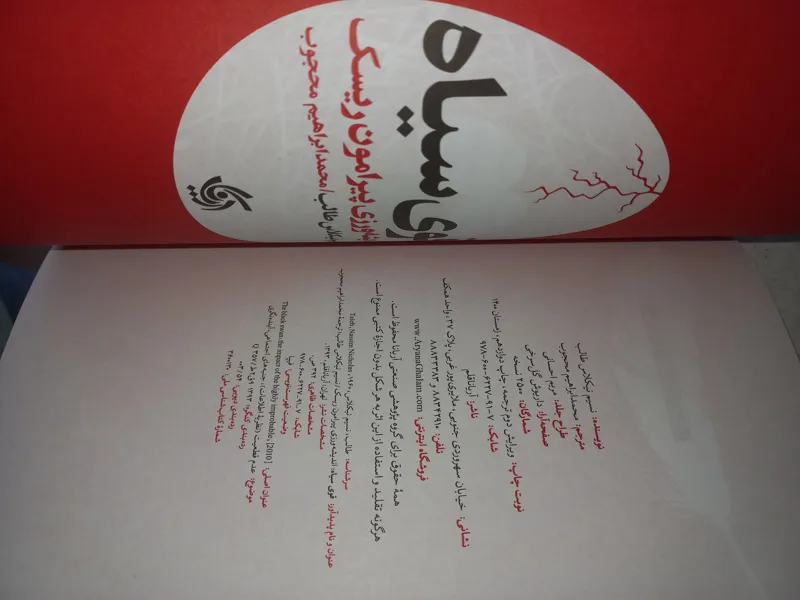 سیاه
پیرامون ریسک
طالب/محمدابراهیم محجوب
آریانا
نویسنده: نسیم نیکلاس طالب
مترجم: محمدابراهیم محجوب
طراح جلد: مریم احسانی
صفحه‌آرا: داریوش گل‌سرخی
شمارگان: ۲۵۰۰ نسخه
نوبت چاپ: ویرایش دوم ترجمه، چاپ دوازدهم، زمستان ۱۴۰۰
شابک: ۷-۹۱-۶۲۲۷-۶۰۰-۹۷۸
ناشر: آریاناقلم
نشانی: خیابان سهروردی جنوبی، ملایری‌پور غربی، پلاک ۳۷، واحد همکف
تلفن: ۸۸۳۴۲۹۱۰ و ۸۸۸۴۳۳۸۳
فروشگاه اینترنتی: www.AryanaGhalam.com
همهٔ حقوق برای گروه پژوهشی صنعتی آریانا محفوظ است.
هرگونه تقلید و استفاده از این اثر به هر شکل بدون اجازهٔ کتبی ممنوع است.
سرشناسه: طالب، نسیم نیکلاس، ۱۹۶۰ـ Taleb, Nassim Nicholas
عنوان و نام پدیدآور: قوی سیاه: اندیشه‌ورزی پیرامون ریسک/ نسیم نیکلاس طالب؛ ترجمهٔ محمدابراهیم محجوب
مشخصات نشر: تهران: آریاناقلم، ۱۳۹۳.
مشخصات ظاهری: ۳۹۲ ص.
شابک: ۷-۹۱-۶۲۲۷-۶۰۰-۹۷۸
وضعیت فهرست‌نویسی: فیپا
عنوان اصلی: The black swan: the impact of the highly improbable, [2010]
موضوع: عدم قطعیت (نظریهٔ اطلاعات)؛ جنبه‌های اجتماعی؛ آینده‌نگری
رده‌بندی کنگره:
رده‌بندی دیویی: ۰۰۳/۵۴
شمارهٔ کتاب‌شناسی ملی: